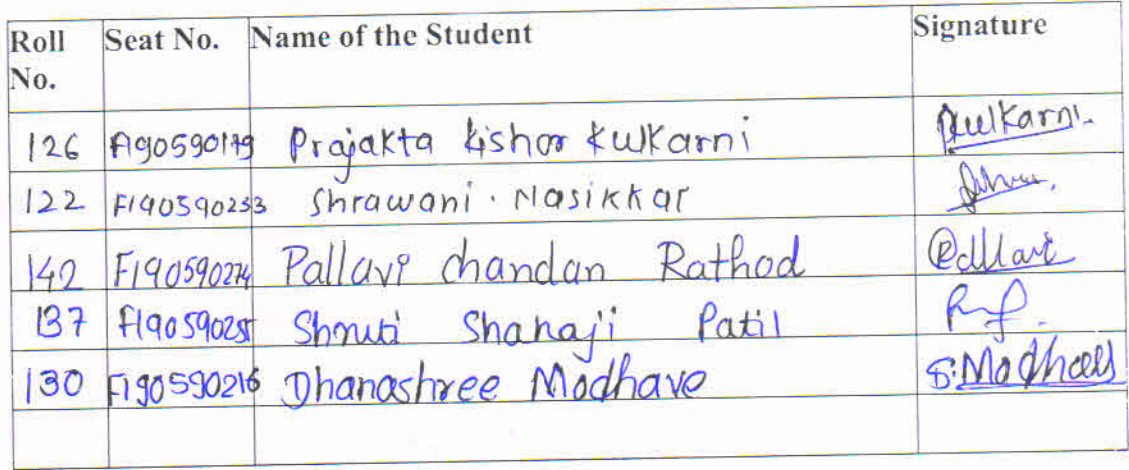 Roll No. Seat No. Name of the Student Signature
126 F190590179 Prajakta Kishor Kulkarni Kulkarni.
122 F190590233 Shrawani. Nasikkar
142 F190590274 Pallavi chandan Rathod Pallavi
137 F190590255 Shruti Shahaji Patil
130 F190590216 Dhanashree Modhave